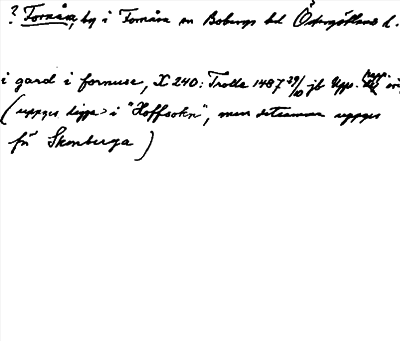 ? Fornåsa, by i Fornåsa sn Bobergs hd Östergötlands l.
i gard i fornuse, X 240: Trolla 1487 29/10 jb Upps. papp. or,
(uppges ligga i "Hoffsokn", men detsamma uppges
för Skenberga)